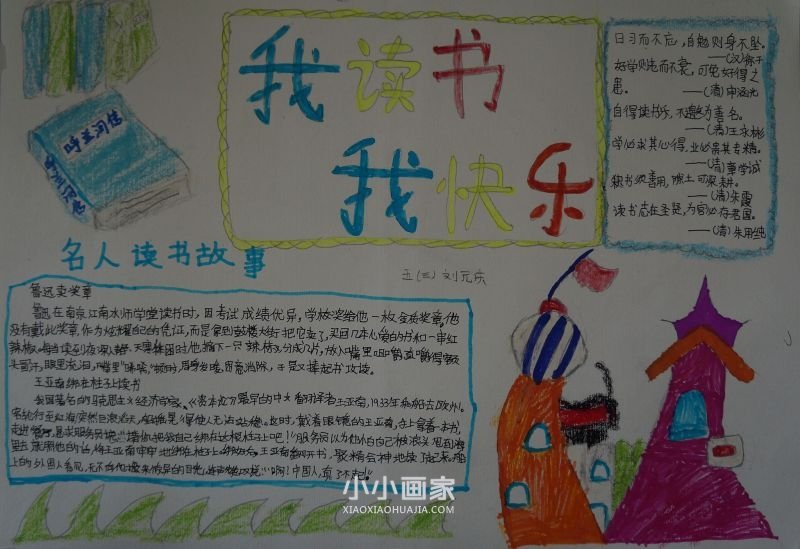 我读书
我快乐
日习而不忘，自勉则身不坠。
——(汉)徐干
好学则老而不衰，可免好得之
患。——(清)申涵光
自得读书乐，不邀为善名。
——(清)王永彬
学必求其心得，业必贵其专精。
——(清)章学诚
——(清)朱霞
读书志在圣贤，为官心存君国。
——(清)朱用纯
呼兰河传
名人读书故事
五(三)刘元庆
鲁迅卖奖章
鲁迅在南京江南水师学堂读书时，因考试成绩优异，学校奖给他一枚金质奖章。他
没有戴此奖章，作为炫耀自己的凭证，而是拿到鼓楼大街把它卖了，买回几本心爱的书和一串红
辣椒。每当读到夜深人静、天寒体困时，他摘下一只辣椒，分成几片，放入嘴里咀嚼，直嚼得额
头冒汗，眼里流泪，嘴里
周身发暖，困意消除，于是又捧起书攻读。
王亚南绑在柱子上读书
我国著名的
《资本论》最早的中文翻译者王亚南，1933年乘船去欧洲。
客轮行至红海，突然巨浪滔天，船摇晃得使人无法站稳。这时，戴着眼镜的王亚南，手上拿着一本书，
走进
恳求服务员说："请你把我绑在这根柱子上吧！"服务员以为他怕自己被浪头甩到海
里去，就照他的话，将王亚南牢牢地绑在柱子上。
王亚南翻开书，聚精会神地读起来。船
上的外国人看见，无不向他投来惊异的目光，连声赞叹说："啊！中国人，真了不起！"
小小画家
XIAOXIAOHUAJIA.COM